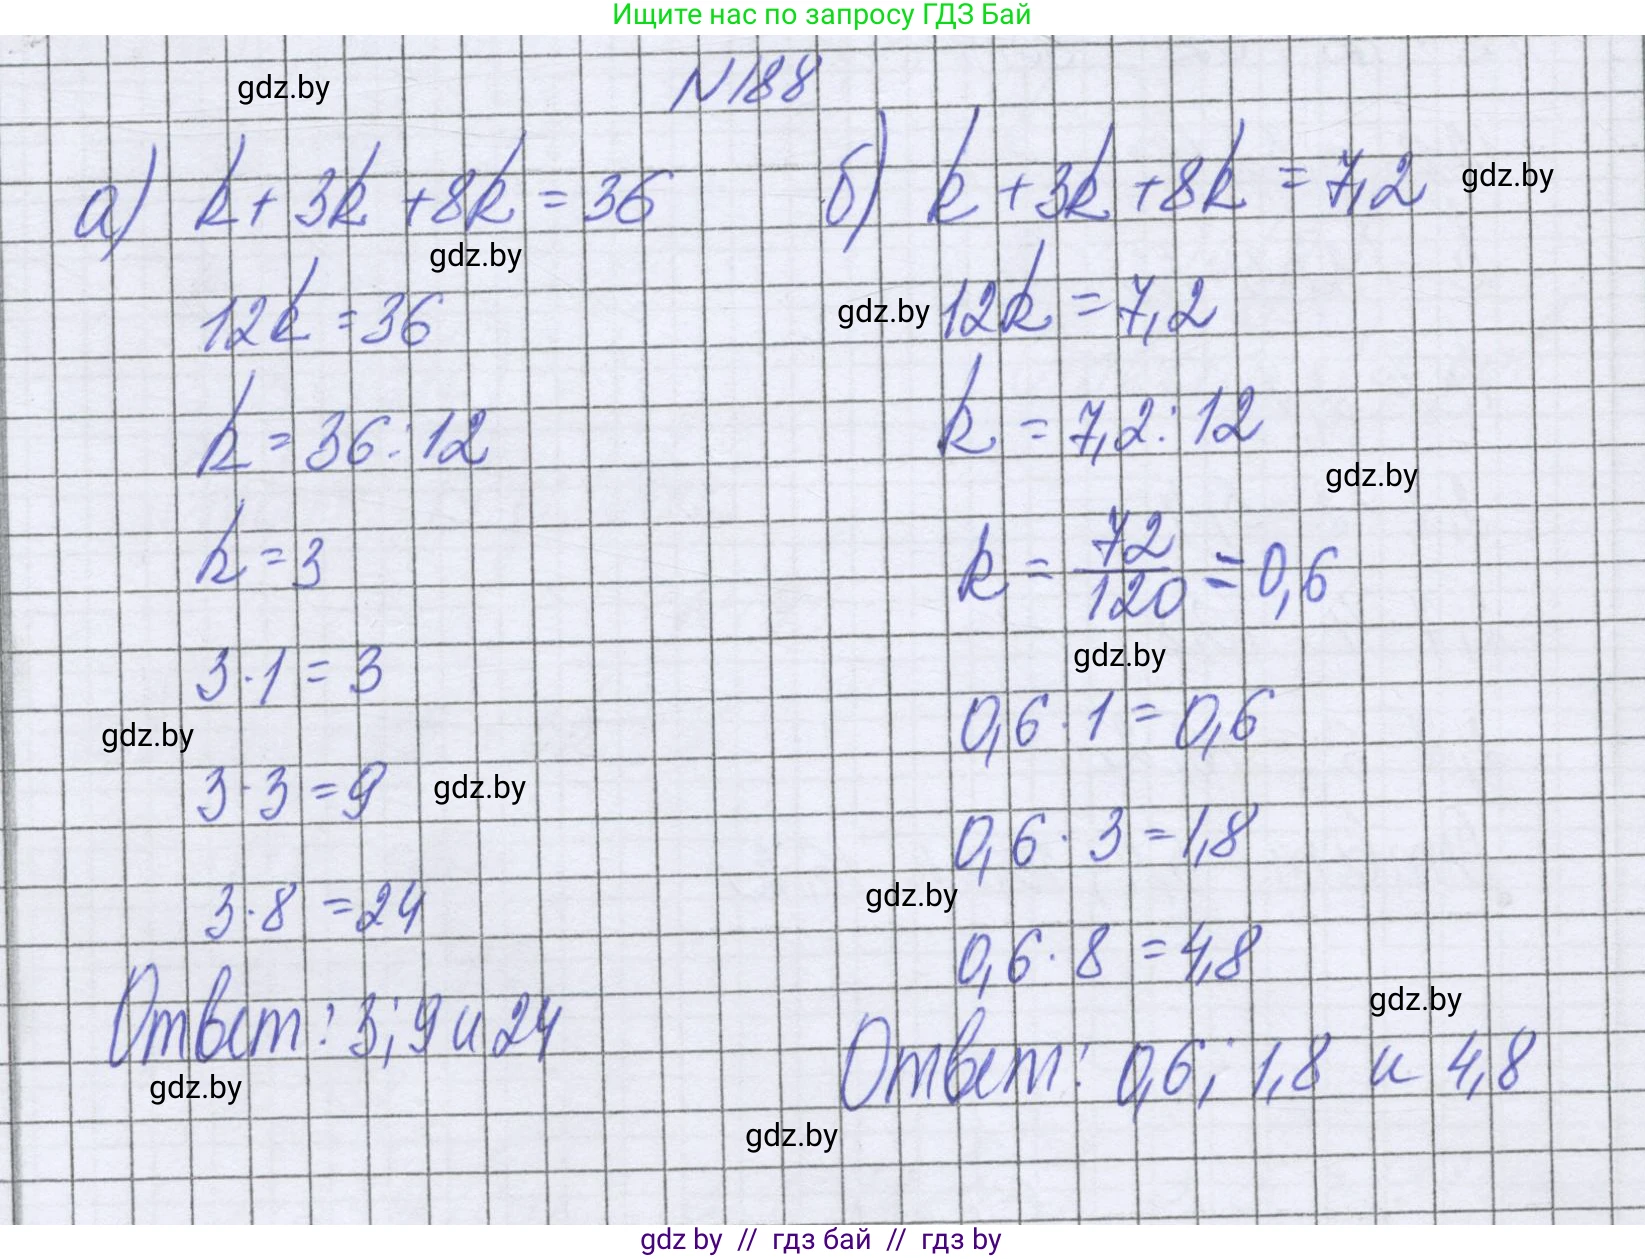 Ищите нас по запросу ГДЗ Бай
gdz.by
N188
а) k + 3k + 8k = 36
gdz.by
12k = 36
k = 36 : 12
k = 3
3 · 1 = 3
gdz.by
3 · 3 = 9
gdz.by
3 · 8 = 24
Ответ: 3; 9 и 24
gdz.by
б) k + 3k + 8k = 7,2
gdz.by
gdz.by
12k = 7,2
k = 7,2 : 12
gdz.by
k = 72/120 = 0,6
gdz.by
0,6 · 1 = 0,6
0,6 · 3 = 1,8
gdz.by
0,6 · 8 = 4,8
gdz.by
Ответ: 0,6; 1,8 и 4,8
gdz.by
gdz by // гдз бай // гдз by